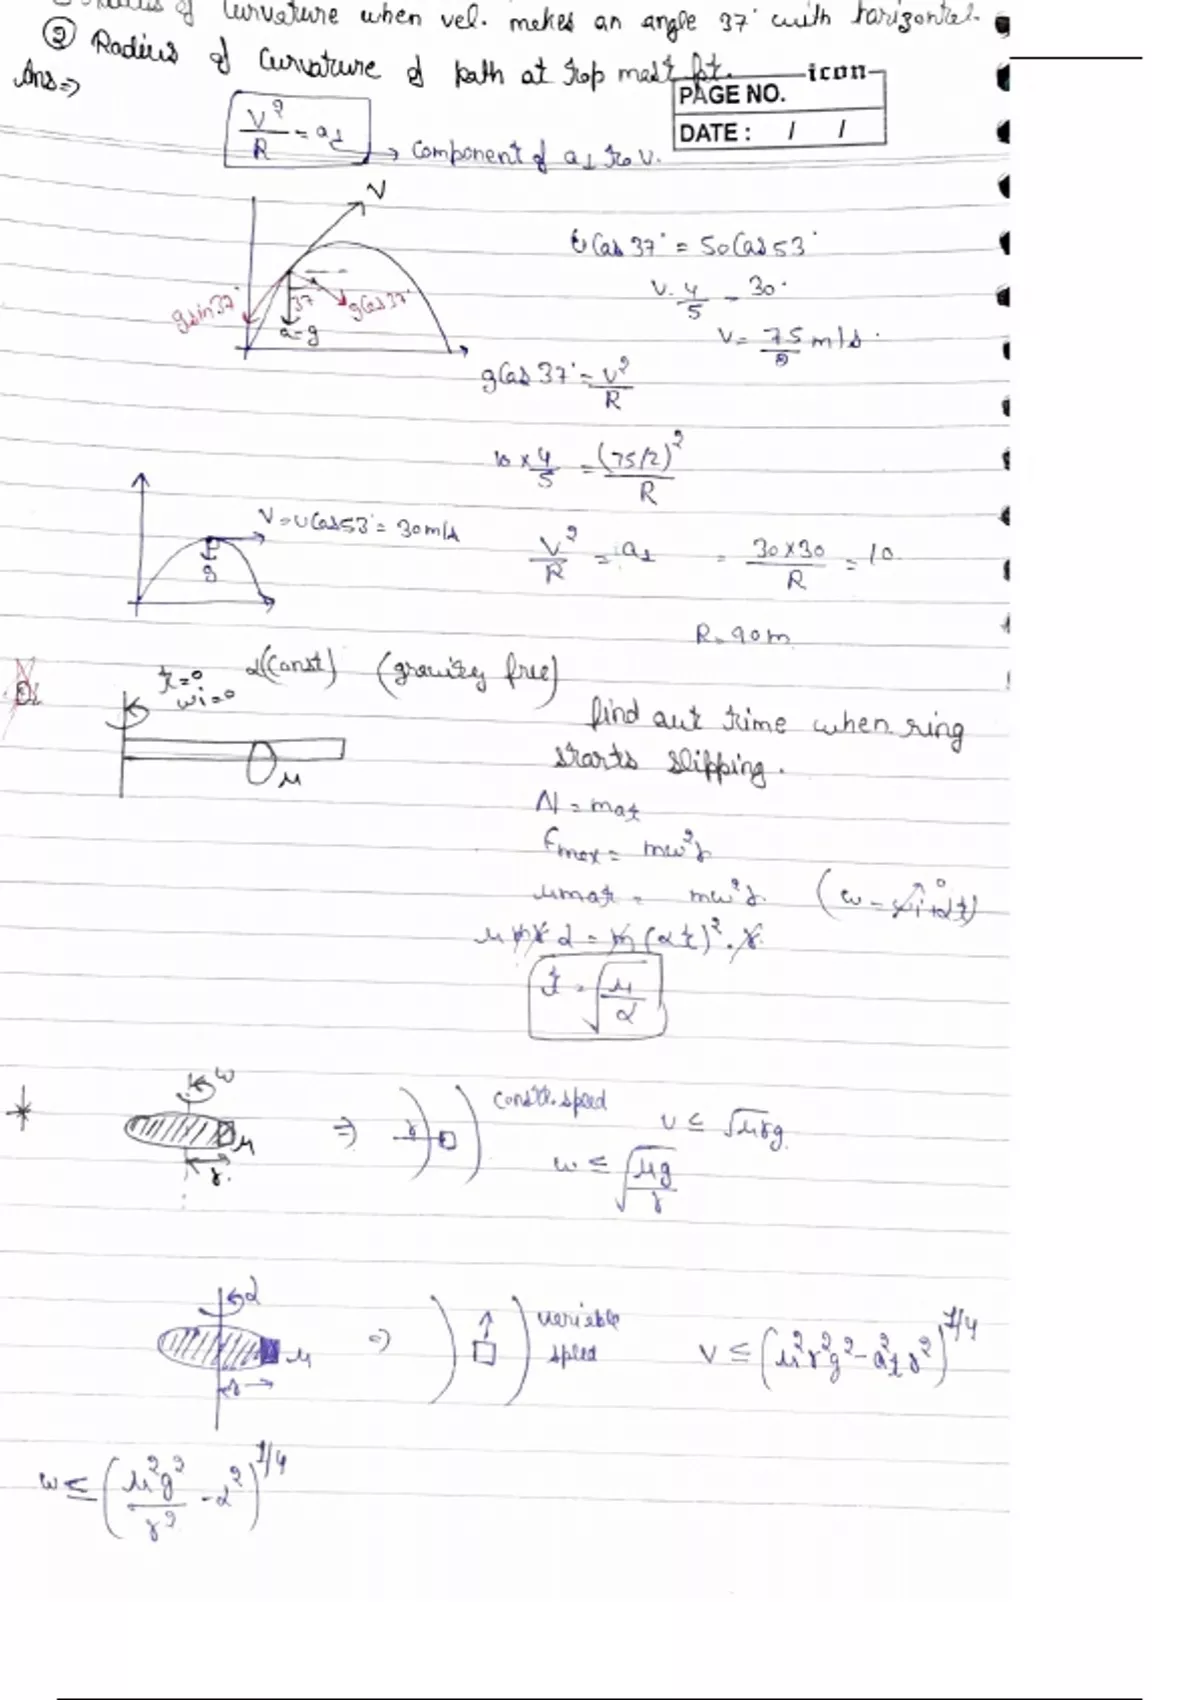 Radius of Curvature when vel. makes an angle 37° with horizontal.
② Radius of Curvature of path at top most pt.
Ans ⇒
icon
PAGE NO.
DATE : / /
V²/R = a⊥ → Component of a ⊥ to v.
V
gsin37°
37
gCos37°
a=g
Cos 37° = 50 Cos 53°
V. 4/5 = 30.
V = 75/2 m/s.
gCos 37° = V²/R
10 × 4/5 = (75/2)²/R
V = uCos53° = 30m/s
g
V²/R = a⊥ = 30×30/R = 10
R = 90m
t=0
wi=0
α(Const) (gravity free)
find out time when ring
starts slipping.
μ
N = mat
fmax = mω²r
μmat = mω²r. (ω = ωi+αt)
0
μmrα = m(αt)².r
t = √(μ/α)
ω
μ
r.
⇒
r
Constt. speed
v ≤ √μrg.
ω ≤ √(μg/r)
α
μ
r
⇒
variable
speed
V ≤ (μ²r²g² - a²t r²)^1/4
ω ≤ (μ²g²/r² - α²)^1/4